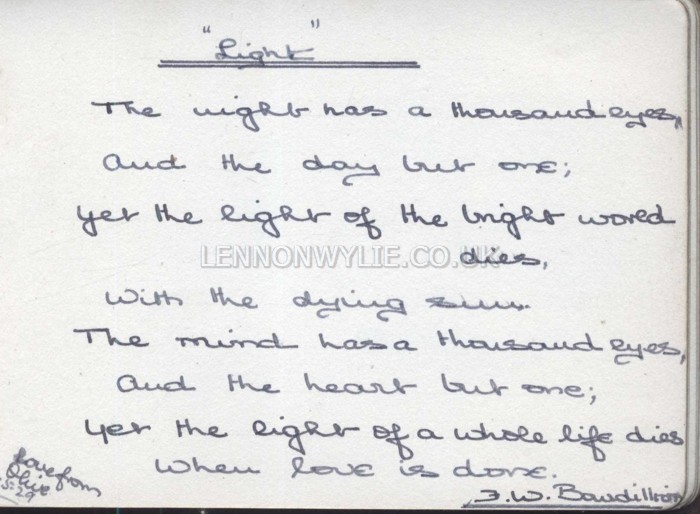 "Light"
The night has a thousand eyes,
And the day but one;
Yet the light of the bright world
dies,
With the dying sun.
The mind has a thousand eyes,
And the heart but one;
Yet the light of a whole life dies
When love is done.
F.W. Bourdillion
Love from
Olive
LENNONWYLIE.CO.UK